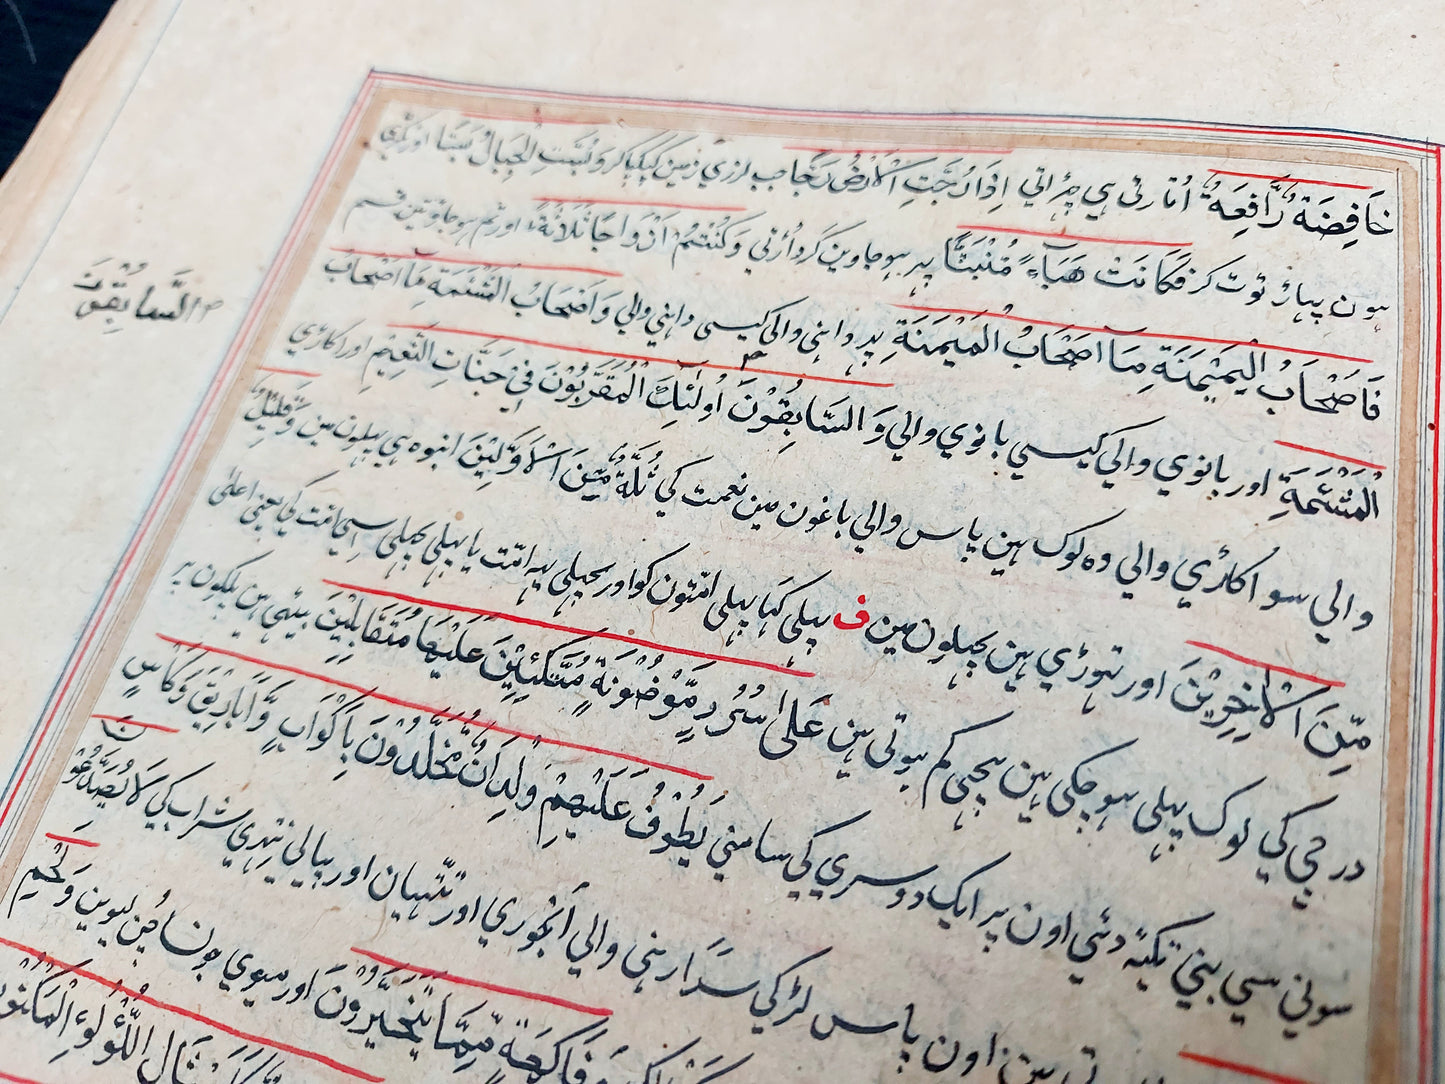 خَافِضَةٌ رَّافِعَةٌ اُتارتی ہی چڑاتی اِذَا رُجَّتِ الْاَرْضُ رَجًّا جب لرزی زمین کپکپا کر وَبُسَّتِ الْجِبَالُ بَسًّا اور ٹکڑی
ہون پہاڑ ٹوٹ کر فَكَانَتْ هَبَاءً مُنْبَثًّا پہر ہو جاوین گرد اُڑتی وَكُنْتُمْ اَزْوَاجًا ثَلَاثَةً اور تم ہو جاؤ تین قسم
فَاَصْحَابُ الْمَيْمَنَةِ مَا اَصْحَابُ الْمَيْمَنَةِ پہر داہنی والی کیسی داہنی والی وَاَصْحَابُ الْمَشْئَمَةِ مَا اَصْحَابُ
الْمَشْئَمَةِ اور بانوی والی کیسی بانوی والی وَالسَّابِقُوْنَ ۳ اُولٰئِكَ الْمُقَرَّبُوْنَ فِيْ جَنَّاتِ النَّعِيْمِ اور اکاڑی
والی سو اکاڑی والی وہ لوک ہین پاس والی باغون مین نعمت کی ثُلَّةٌ مِّنَ الْاَوَّلِيْنَ انبوہ ہی پہلون مین وَقَلِيْلٌ
مِّنَ الْاٰخِرِيْنَ اور تہوڑی ہین پچہلون مین ف پہلی کہا پہلی امتون کو اور پچہلی یہہ امت یا پہلی پچہلی اسی امت کی یعنی اعلیٰ
درجی کی لوک پہلی ہو چکی ہین پیچہی کم ہوتی ہین عَلٰى سُرُرٍ مَّوْضُوْنَةٍ مُتَّكِئِيْنَ عَلَيْهَا مُتَقَابِلِيْنَ بیٹہی ہین پلکون پر
سونی سی بنی تکیہ دئی اون پر ایک دوسری کی سامنی يَطُوْفُ عَلَيْهِمْ وِلْدَانٌ مُّخَلَّدُوْنَ بِاَكْوَابٍ وَّاَبَارِيْقَ وَكَاْسٍ
پاس لڑکی سدا رہنی والی آبخوری اور تتہیان اور پیالی نتہری شراب کی لَا يُصَدَّعُوْنَ
اون وَفَاكِهَةٍ مِّمَّا يَتَخَيَّرُوْنَ اور میوی جونسا چُن لیوین وَلَحْمِ
اللُّؤْلُؤِ الْمَكْنُوْنِ
۳ السَّابِقُوْنَ